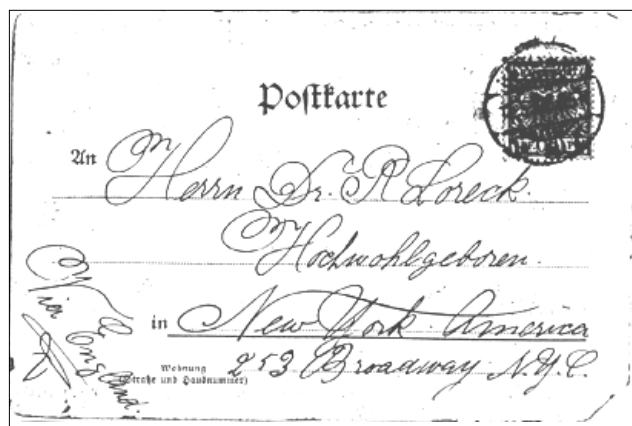 Postkarte
An Herrn Dr. R Loreck.
Hochwohlgeboren.
in New York America
Wohnung
(Straße und Hausnummer)
253 Broadway N.Y.C.
Via England.